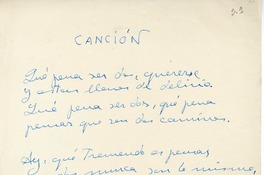 CANCIÓN
Qué pena ser dos, quererse
y estar llenos de delirio.
Qué pena ser dos, qué pena
pensar que son dos caminos.
Ay, qué tremendo es pensar
dos nunca son lo mismo,